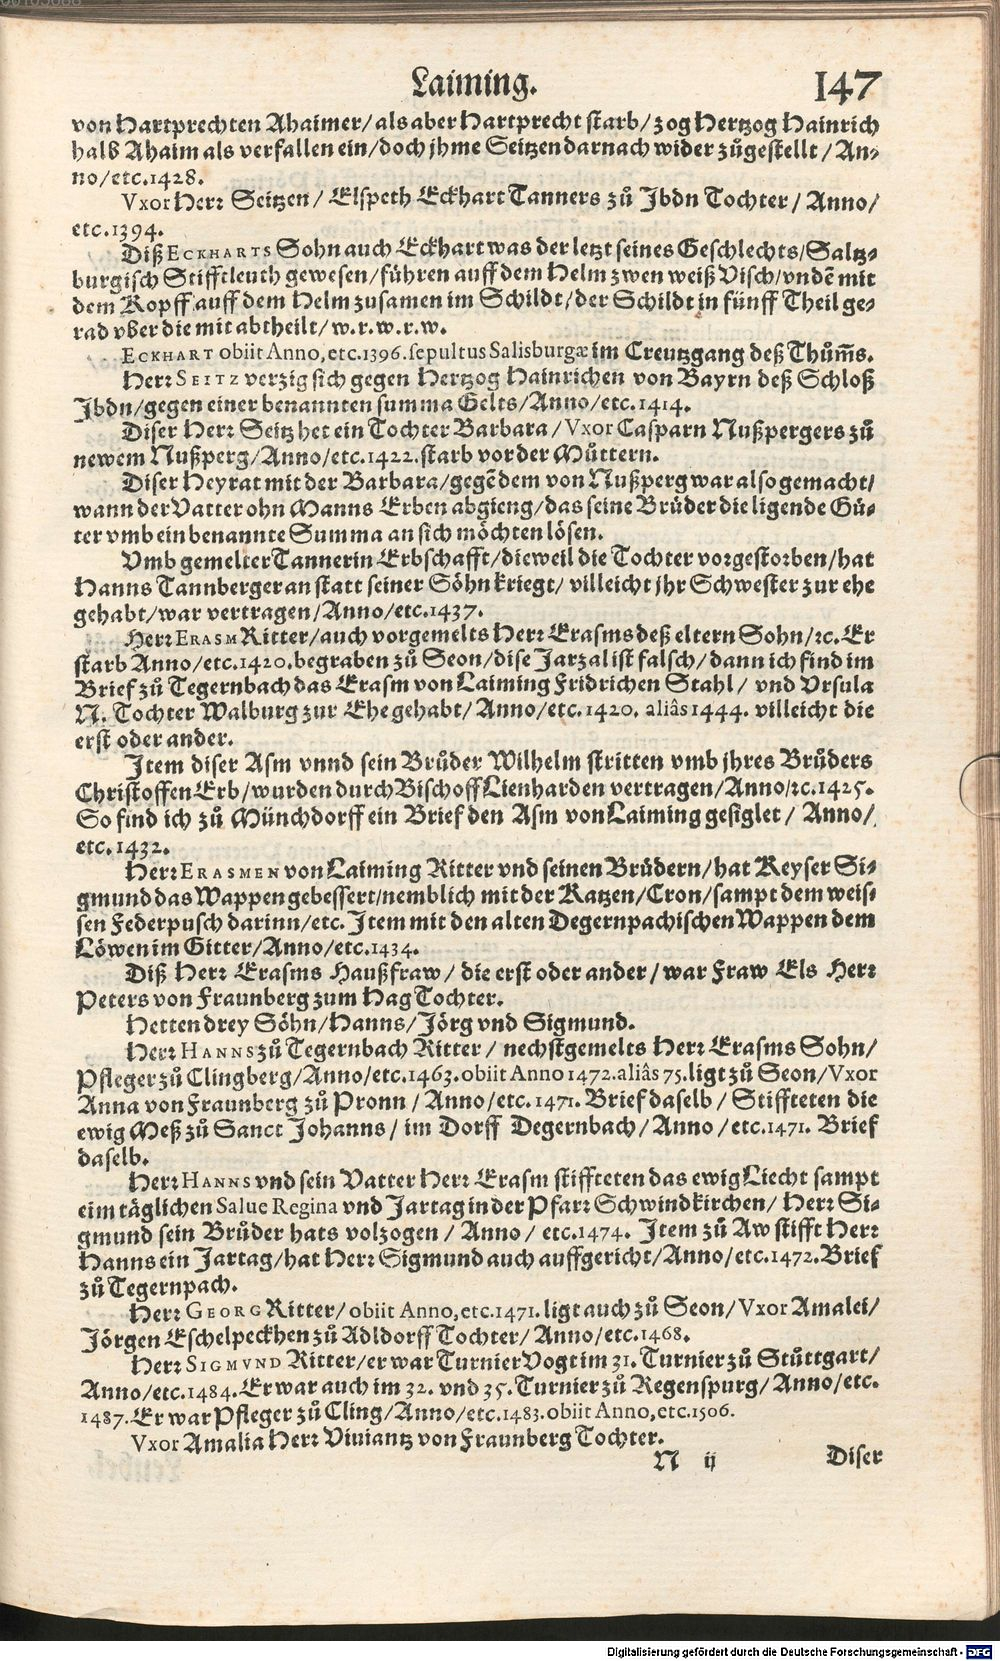 Laiming. 147
von Hartprechten Ahaimer/ als aber Hartprecht starb/ zog Hertzog Hainrich
halb Ahaim als verfallen ein/ doch jhme Seitzen darnach wider zůgestellt / An-
no/ etc. 1428.
Vxor Herr Seitzen / Elspeth Eckhart Tanners zů Jbdn Tochter / Anno/
etc. 1394.
Diß ECKHARTS Sohn auch Eckhart was der letzt seines Geschlechts/ Saltz-
burgisch Stifftleuth gewesen/ führen auff dem Helm zwen weiß Visch/ vndē mit
dem Kopff auff dem Helm zusamen im Schildt/ der Schildt in fünff Theil ge-
rad vber die mit abtheilt/ w. r. w. r. w.
ECKHART obiit Anno, etc. 1396. sepultus Salisburgæ im Creutzgang deß Thům̃s.
Herr SEITZ verzig sich gegen Hertzog Hainrichen von Bayrn deß Schloß
Jbdn/ gegen einer benannten summa Gelts/ Anno/ etc. 1414.
Diser Herr Seitz het ein Tochter Barbara / Vxor Casparn Nußpergers zů
newem Nußperg/ Anno/ etc. 1422. starb vor der Můttern.
Diser Heyrat mit der Barbara/ gegē dem von Nußperg war also gemacht/
wann der Vatter ohn Manns Erben abgieng/ das seine Brůder die ligende Gü-
ter vmb ein benannte Summa an sich möchten lösen.
Vmb gemelter Tannerin Erbschafft/ dieweil die Tochter vorgestorben/ hat
Hanns Tannberger an statt seiner Söhn kriegt/ villeicht jhr Schwester zur ehe
gehabt/ war vertragen/ Anno/ etc. 1437.
Herr ERASM Ritter/ auch vorgemelts Herr Erasms deß eltern Sohn/ ꝛc. Er
starb Anno/ etc. 1420. begraben zů Seon/ dise Jarzal ist falsch/ dann ich find im
Brief zů Tegernbach das Erasm von Laiming Fridrichen Stahl/ vnd Vrsula
N. Tochter Walburg zur Ehe gehabt/ Anno/ etc. 1420. aliâs 1444. villeicht die
erst oder ander.
Jtem diser Asm vnnd sein Brůder Wilhelm stritten vmb jhres Brůders
Christoffen Erb/ wurden durch Bischoff Lienharden vertragen/ Anno/ ꝛc. 1425.
So find ich zů Münchdorff ein Brief den Asm von Laiming gesiglet / Anno/
etc. 1432.
Herr ERASMEN von Laiming Ritter vnd seinen Brůdern/ hat Keyser Si-
gmund das Wappen gebessert/ nemblich mit der Katzen/ Cron/ sampt dem weis-
sen Federpusch darinn/ etc. Jtem mit den alten Degernpachischen Wappen dem
Löwen im Gitter/ Anno/ etc. 1434.
Diß Herr Erasms Haußfraw / die erst oder ander / war Fraw Els Herr
Peters von Fraunberg zum Hag Tochter.
Hetten drey Söhn/ Hanns/ Jörg vnd Sigmund.
Herr HANNS zů Tegernbach Ritter / nechstgemelts Herr Erasms Sohn/
Pfleger zů Clingberg/ Anno/ etc. 1463. obiit Anno 1472. aliâs 75. ligt zů Seon/ Vxor
Anna von Fraunberg zů Pronn / Anno/ etc. 1471. Brief daselb / Stiffteten die
ewig Meß zů Sanct Johanns / im Dorff Degernbach / Anno / etc. 1471. Brief
daselb.
Herr HANNS vnd sein Vatter Herr Erasm stiffteten das ewig Liecht sampt
eim täglichen Salue Regina vnd Jartag in der Pfarr Schwindkirchen / Herr Si-
gmund sein Brůder hats volzogen / Anno / etc. 1474. Jtem zů Aw stifft Herr
Hanns ein Jartag/ hat Herr Sigmund auch auffgericht/ Anno/ etc. 1472. Brief
zů Tegernpach.
Herr GEORG Ritter/ obiit Anno, etc. 1471. ligt auch zů Seon/ Vxor Amalei/
Jörgen Eschelpeckhen zů Adldorff Tochter/ Anno/ etc. 1468.
Herr SIGMVND Ritter/ er war Turnier Vogt im 31. Turnier zů Stůttgart/
Anno/ etc. 1484. Er war auch im 32. vnd 35. Turnier zů Regenspurg/ Anno/ etc.
1487. Er war Pfleger zů Cling/ Anno/ etc. 1483. obiit Anno, etc. 1506.
Vxor Amalia Herr Viuiantz von Fraunberg Tochter.
N ij Diser
Digitalisierung gefördert durch die Deutsche Forschungsgemeinschaft - DFG